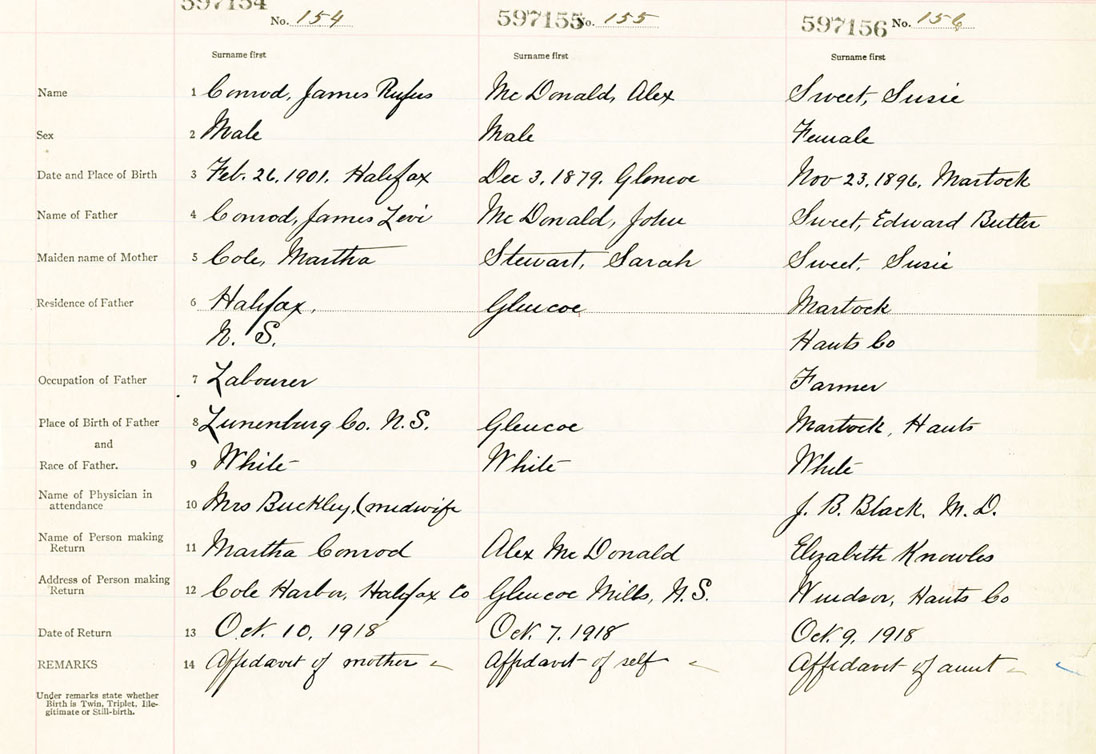 597154 No. 154 597155 No. 155 597156 No. 156
Surname first Surname first Surname first
Name 1 Conrod, James Rufus Mc Donald, Alex Sweet, Susie
Sex 2 Male Male Female
Date and Place of Birth 3 Feb. 26, 1901, Halifax Dec 3, 1879, Glencoe Nov 23, 1896, Martock
Name of Father 4 Conrod, James Levi Mc Donald, John Sweet, Edward Butler
Maiden name of Mother 5 Cole, Martha Stewart, Sarah Sweet, Susie
Residence of Father 6 Halifax, Glencoe Martock
N. S. Hants Co
Occupation of Father 7 Labourer Farmer
Place of Birth of Father 8 Lunenburg Co. N.S. Glencoe Martock, Hants
and
Race of Father. 9 White White White
Name of Physician in
attendance 10 Mrs Buckley, (midwife J. B. Black, M.D.
Name of Person making
Return 11 Martha Conrod Alex Mc Donald Elizabeth Knowles
Address of Person making
Return 12 Cole Harbor, Halifax Co Glencoe Mills, N.S. Windsor, Hants Co
Date of Return 13 Oct. 10, 1918 Oct. 7, 1918 Oct. 9, 1918
REMARKS 14 Affidavit of mother Affidavit of self Affidavit of aunt
Under remarks state whether
Birth is Twin, Triplet, Ille-
gitimate or Still-birth.